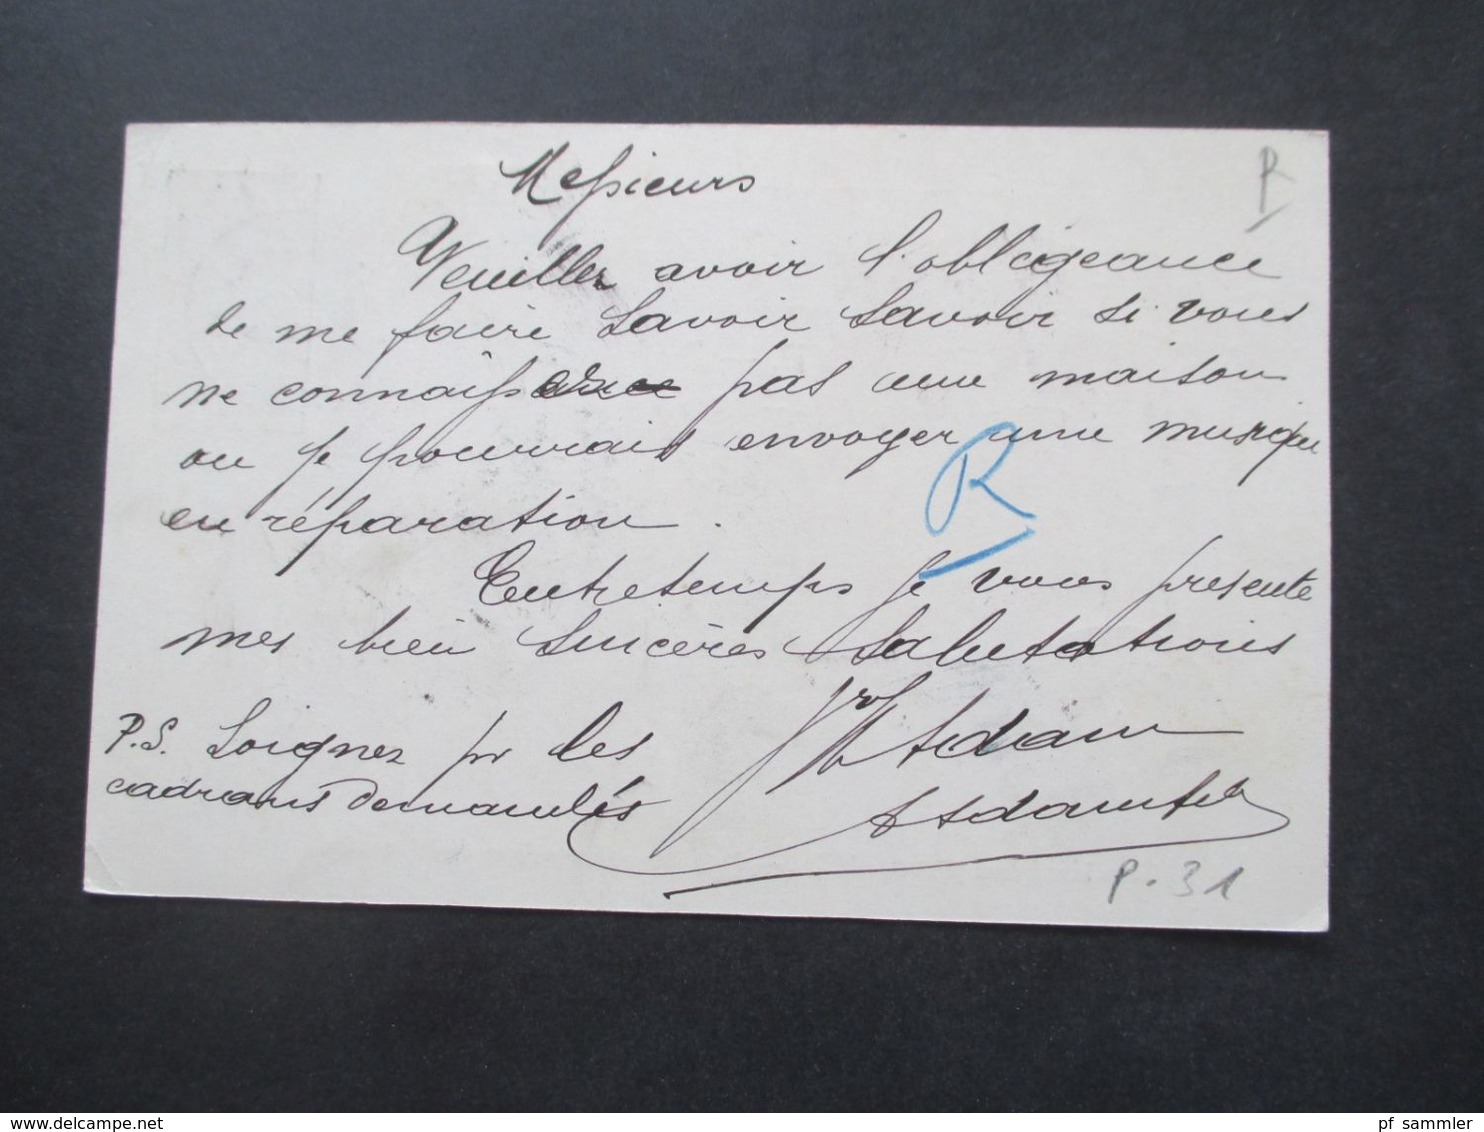 Messieurs
R
Veuillez avoir l'obligeance
de me faire Savoir Savoir si vous
ne connaiss pas une maison
ou je pourrais envoyer une musique
R
en réparation.
Entretemps je vous presente
mes bien Sincères Salutations
P.S. Soignez pr les
cadrans demandés
Adam
P. 31
www.delcampe.net
pf_sammler